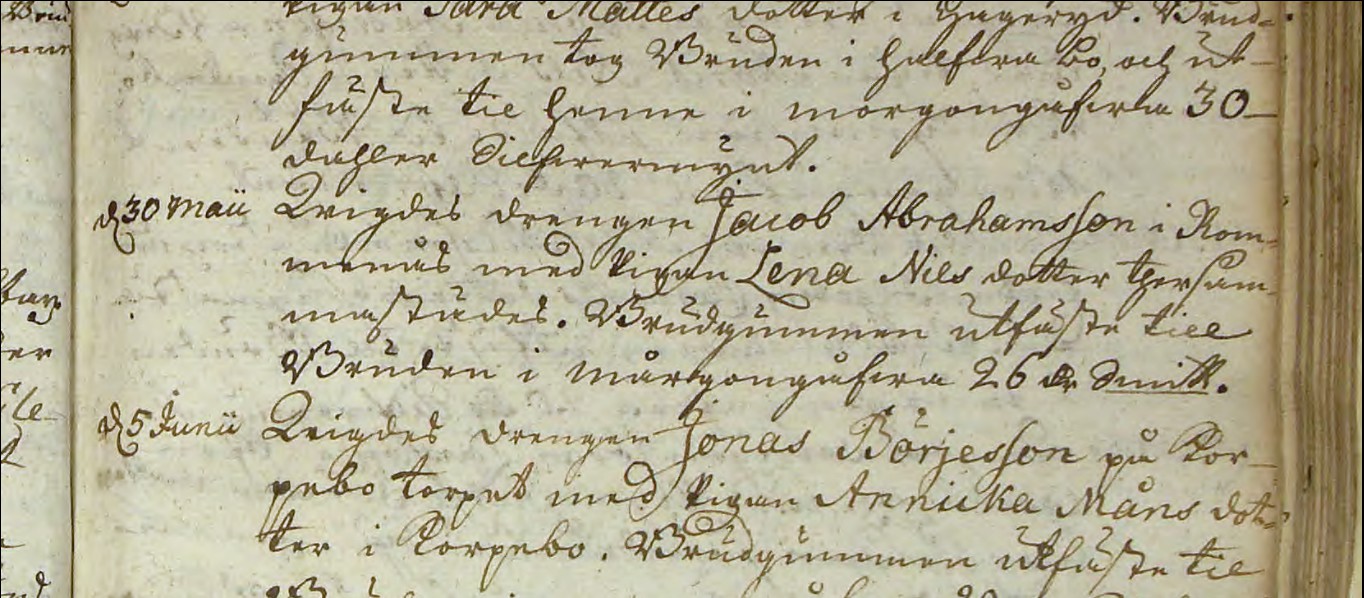 Pigan Sara Mattes dotter i Hageryd. Brud-
gummen tog Bruden i halfwa bo, och ut-
fäste til henne i morgongåfwa 30
daler Silfwermynt.
d 30 Maii Wigdes drengen Jacob Abrahamsson i Rom-
menäs med Pigan Lena Nils dotter ther sam-
mastädes. Brudgummen utfäste till
Bruden i mårgongåfwa 26 dr Smtt.
d 5 Junii Wigdes drengen Jonas Börjesson på Kor-
pebo torpet med Pigan Annicka Måns dot-
ter i Korpebo. Brudgummen utfäste til